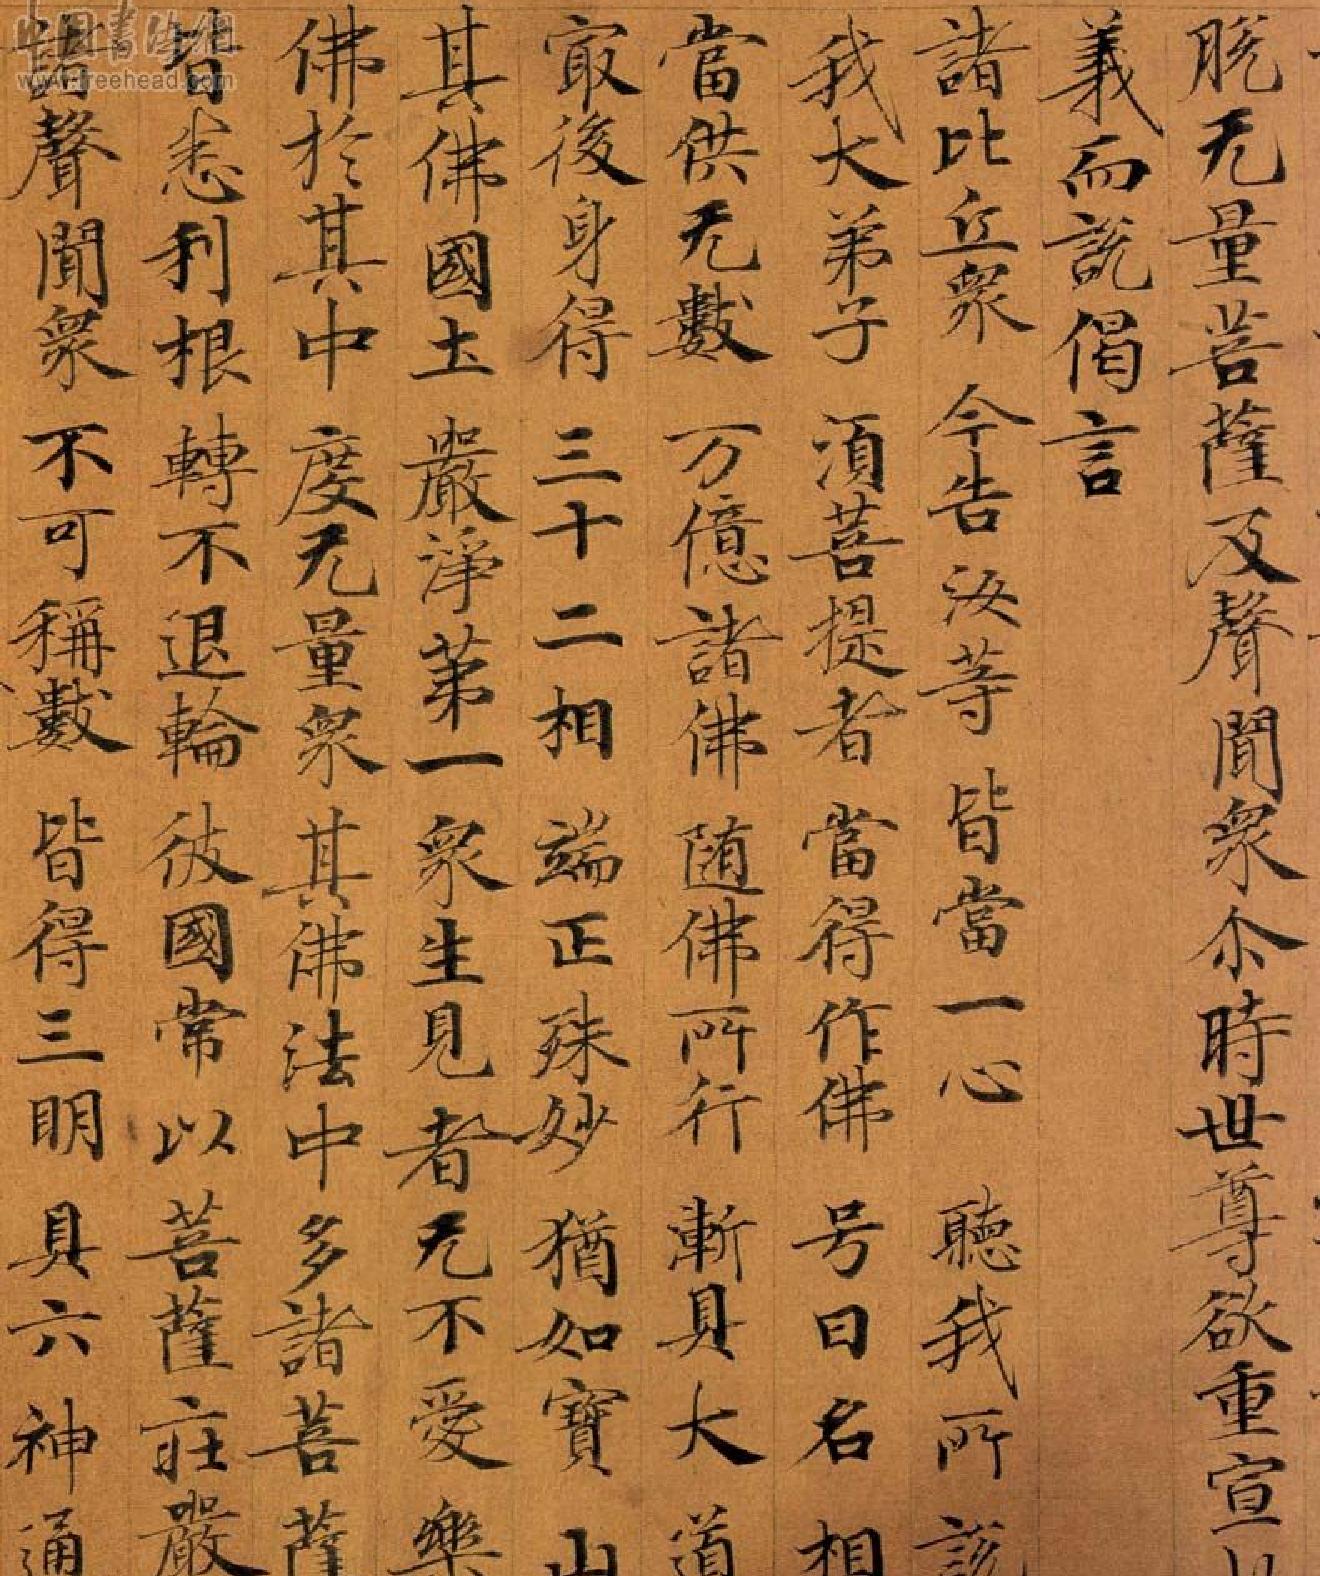 脱无量菩薩及聲聞衆尒時世尊欲重宣
義而說偈言
諸比丘衆 今告汝等 皆當一心 聽我所說
我大弟子 須菩提者 當得作佛 号曰名相
當供无數 万億諸佛 随佛所行 漸具大道
冣後身得 三十二相 端正殊妙 猶如寶山
其佛國土 嚴淨第一 衆生見者 无不愛樂
佛於其中 度无量衆 其佛法中 多諸菩薩
皆悉利根 轉不退輪 彼國常以 菩薩莊嚴
諸聲聞衆 不可稱數 皆得三明 具六神通
中国书法网
www.freehead.com